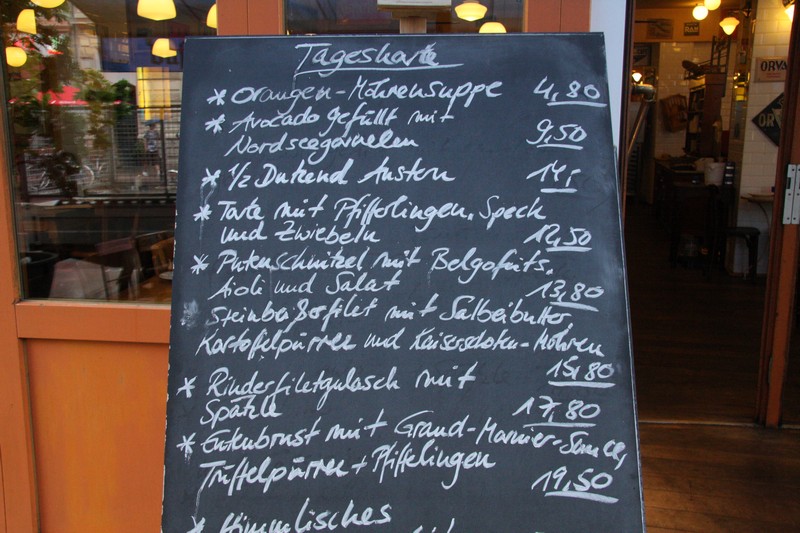 Tageskarte
* Orangen-Möhrensuppe 4,80
* Avocado gefüllt mit
Nordseegarnelen 9,50
* 1/2 Dutzend Austern 14,-
* Tarte mit Pfifferlingen, Speck
und Zwiebeln 12,50
* Putenschnitzel mit Belgofrits,
Aioli und Salat 13,80
Steinbeißerfilet mit Salbeibutter
Kartoffelpürree und Kaiserschoten-Möhren
15,80
* Rinderfiletgulasch mit
Spätzle 17,80
* Entenbrust mit Grand-Marnier-Sauce,
Trüffelpürree + Pfifferlingen
19,50
* Himmlisches
ORVA